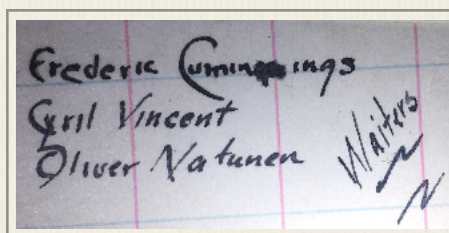 Frederic Cummings
Cyril Vincent
Oliver Natunen
Waiters